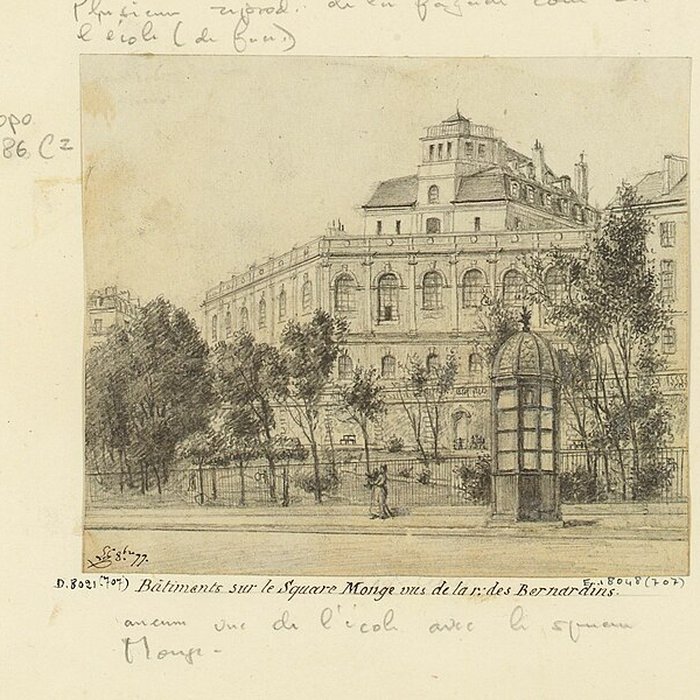 Plusieurs reprod. de la façade
l'école (de face.)
opo
86 C
8bre 77.
D.8021 (707) Bâtiments sur le Square Monge vus de la r: des Bernardins. Ep.18048 (707)
aucune vue de l'école avec le square
Monge -